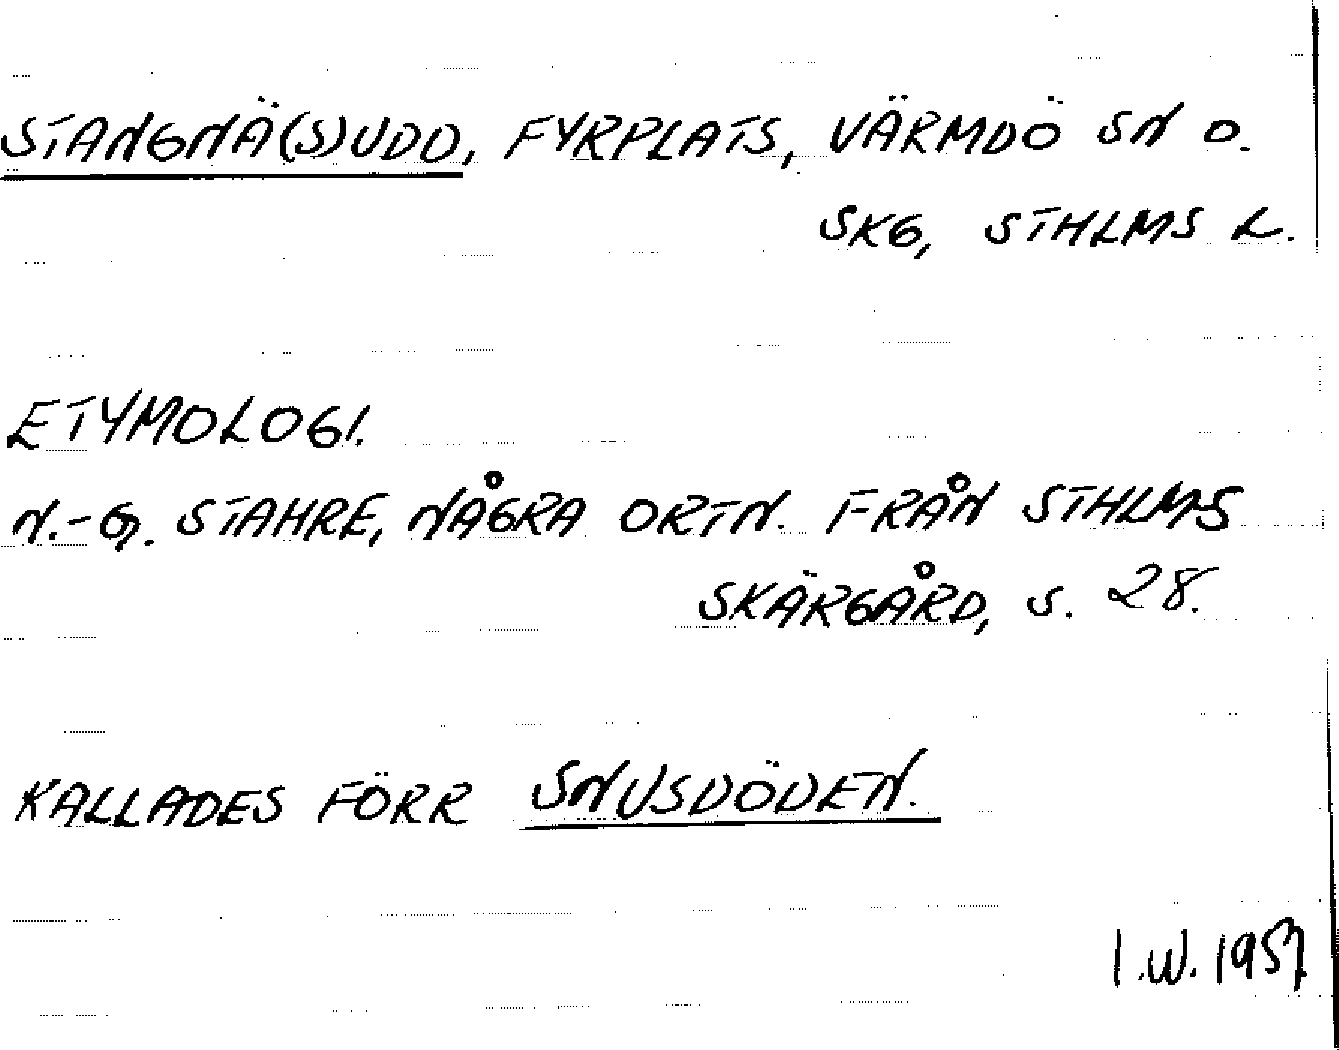 STANGNÄ(S)UDD, FYRPLATS, VÄRMDÖ SN O.
SKG, STHLMS L.
ETYMOLOGI.
N.-G. STAHRE, NÅGRA ORTN. FRÅN STHLMS
SKÄRGÅRD, S. 28.
KALLADES FÖRR SNUSDÖDEN.
I.W. 1957